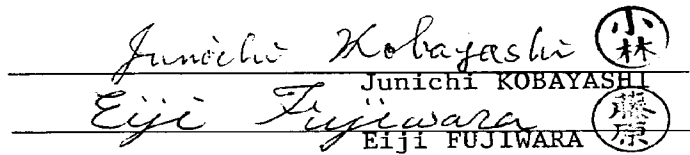 Junichi Kobayashi 小林
Junichi KOBAYASHI
Eiji Fujiwara 藤原
Eiji FUJIWARA